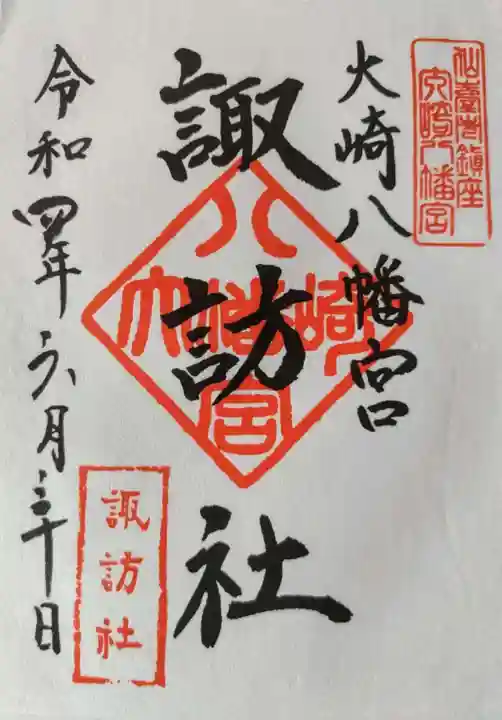 仙臺市鎮座
大崎八幡宮
大崎八幡宮
諏訪社
大崎八幡宮
諏訪社
令和四年六月三十日